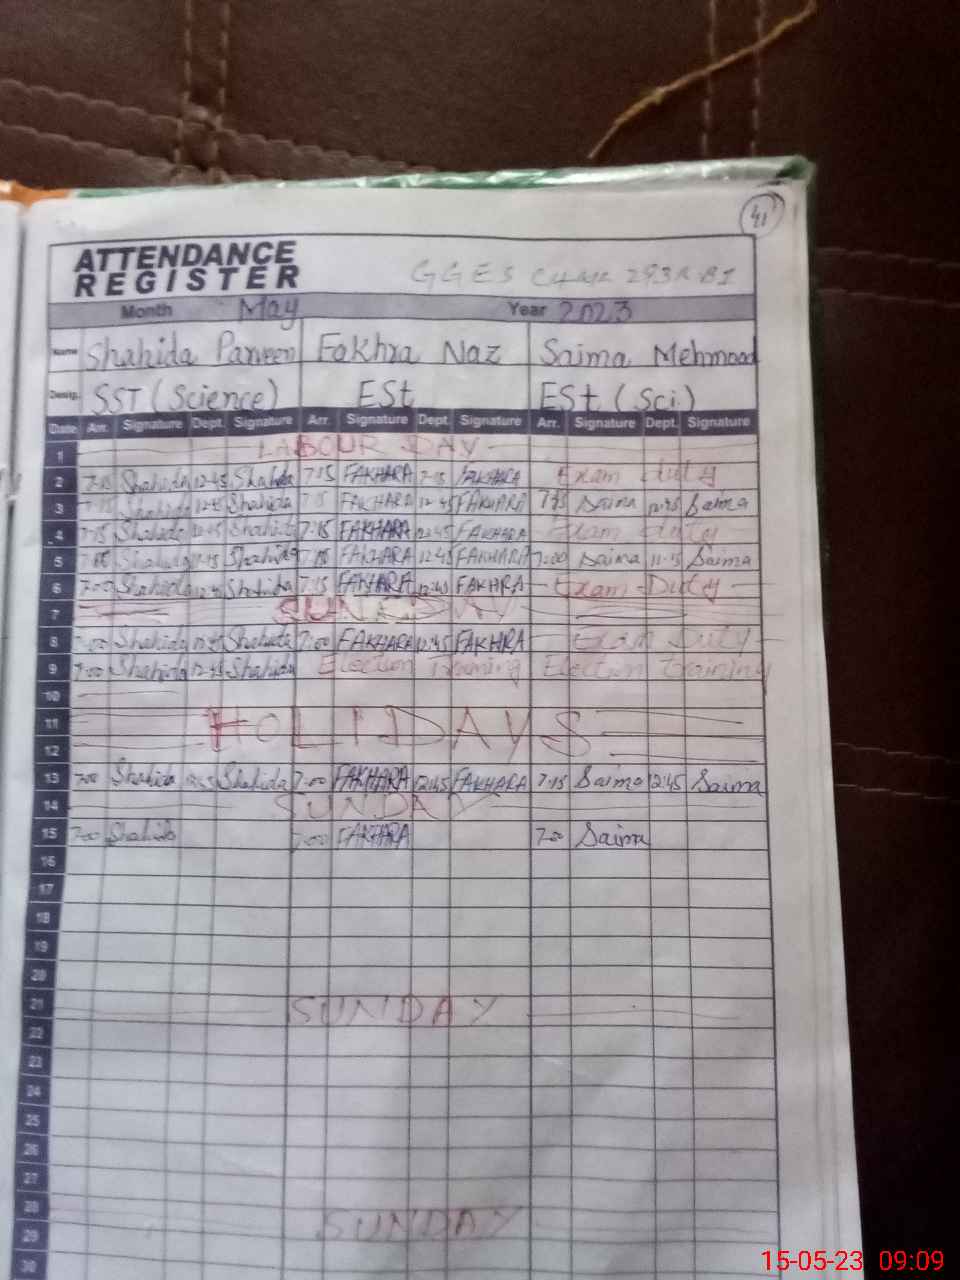 41
ATTENDANCE
REGISTER
GGES
Month May Year 2023
Name Shahida Parveen Fakhra Naz Saima Mehmood
Desig. SST (Science) ESt ESt (Sci.)
Date Arr. Signature Dept. Signature Arr. Signature Dept. Signature Arr. Signature Dept. Signature
1 LABOUR DAY
2 7-15 Shahida 12-45 Shahida 7:15 FAKHARA 7-15 FAKHRA Exam duty
3 7-15 Shahida 12-45 Shahida 7:15 FAKHARA 12-45 FAKHARA 7:45 Saima 12:45 Saima
4 7-15 Shahida 12-45 Shahida 7:15 FAKHARA 12:45 FAKHARA Exam duty
5 Shahida Shahida FAKHARA 12:45 FAKHARA 7:00 Saima 11-15 Saima
6 7-00 Shahida Shahida 7:15 FAKHARA FAKHRA Exam Duty
7 SUNDAY
8 7-00 Shahida Shahida 7:00 FAKHARA 12:45 FAKHRA Exam Duty
9 7:00 Shahida 12-45 Shahida Election Training Election training
10
11 HOLIDAYS
12
13 7:00 Shahida Shahida 7-00 FAKHARA 12:45 FAKHARA 7:15 Saima 12:45 Saima
14 SUNDAY
15 7-00 Shahida 7:00 FAKHARA 7-00 Saima
16
17
18
19
20
21 SUNDAY
22
23
24
25
26
27
28 SUNDAY
29
30
15-05-23 09:09